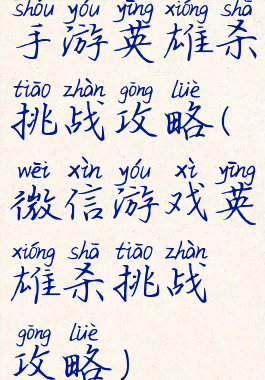 shǒu yóu yīng xióng shā
手游英雄杀
tiāo zhàn gōng lüè
挑战攻略(
wēi xìn yóu xì yīng
微信游戏英
xióng shā tiāo zhàn
雄杀挑战
gōng lüè
攻略)